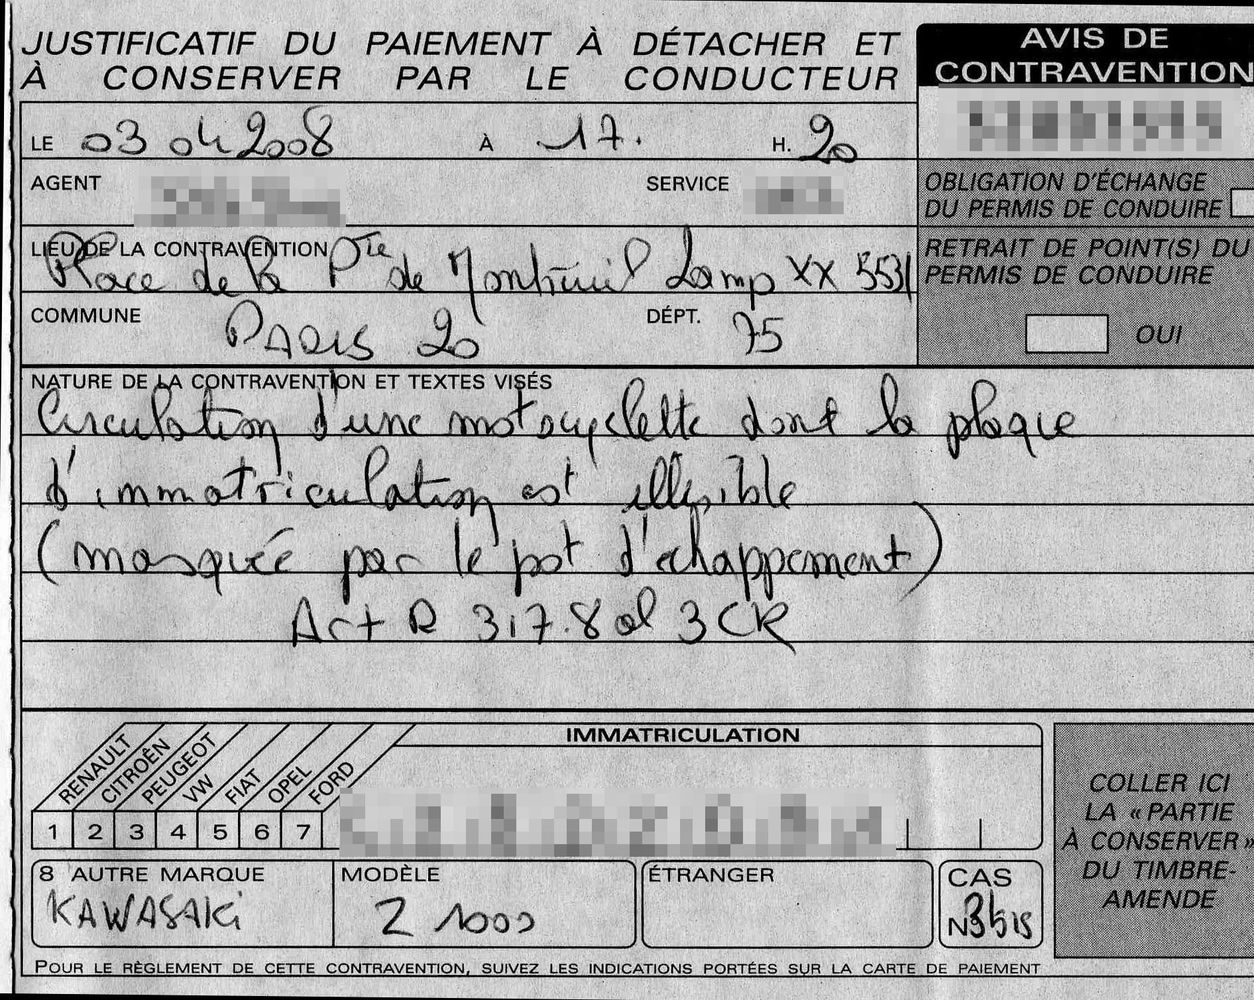 JUSTIFICATIF DU PAIEMENT À DÉTACHER ET
À CONSERVER PAR LE CONDUCTEUR
AVIS DE
CONTRAVENTION
LE 03 04 2008 À 17. H. 20
AGENT SERVICE
OBLIGATION D'ÉCHANGE
DU PERMIS DE CONDUIRE
LIEU DE LA CONTRAVENTION
Place de la Pte de Montreuil Lamp XX 5531
RETRAIT DE POINT(S) DU
PERMIS DE CONDUIRE
OUI
COMMUNE PARIS 20 DÉPT. 75
NATURE DE LA CONTRAVENTION ET TEXTES VISÉS
Circulation d'une motocyclette dont la plaque
d'immatriculation est illisible
(masquée par le pot d'echappement)
Art R 317.8 al 3 CR
IMMATRICULATION
RENAULT
CITROËN
PEUGEOT
VW
FIAT
OPEL
FORD
1 2 3 4 5 6 7
8 AUTRE MARQUE MODÈLE ÉTRANGER CAS
KAWASAKi Z 1000 N3bis
COLLER ICI
LA « PARTIE
À CONSERVER »
DU TIMBRE-
AMENDE
POUR LE RÈGLEMENT DE CETTE CONTRAVENTION, SUIVEZ LES INDICATIONS PORTÉES SUR LA CARTE DE PAIEMENT